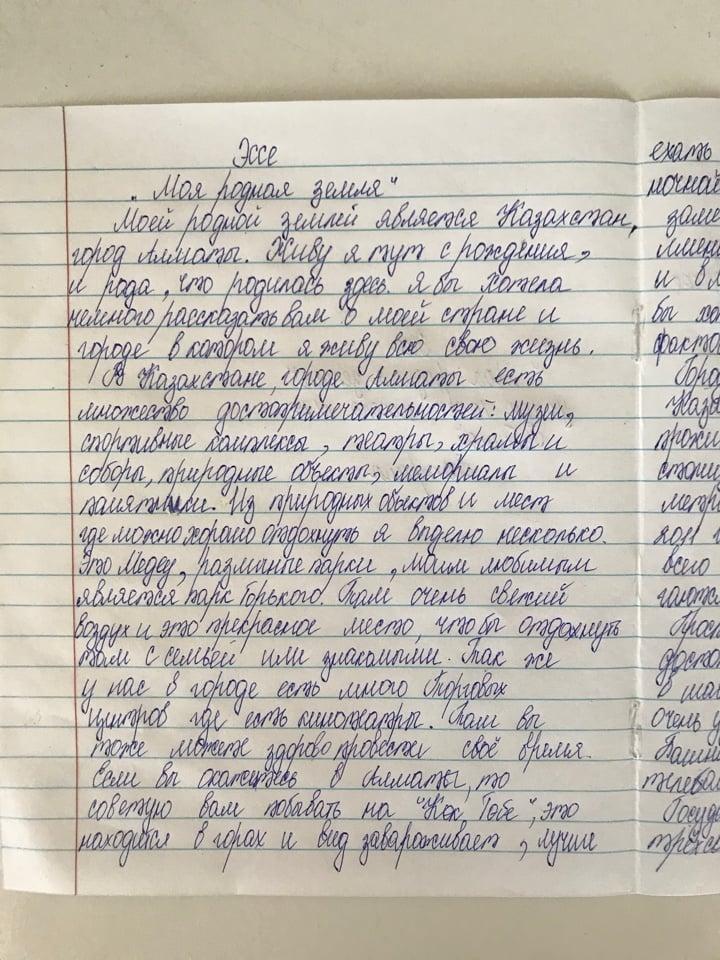 Эссе
„Моя родная земля"
Моей родной землёй является Казахстан,
город Алматы. Живу я тут с рождения,
и рада, что родилась здесь. Я бы хотела
немного рассказать вам о моей стране и
городе в котором я живу всю свою жизнь.
В Казахстане, городе Алматы есть
множество достопримечательностей: музеи,
спортивные комплексы, театры, храмы и
соборы, природные объекты, мемориалы и
памятники. Из природных объектов и мест
где можно хорошо отдохнуть я выделю несколько.
Это Медеу, различные парки, моим любимым
является парк Горького. Там очень свежий
воздух и это прекрасное место, чтобы отдохнуть
там с семьёй или знакомыми. Так же
у нас в городе есть много Торговых
центров где есть кинотеатры. Там вы
тоже можете здорово провести своё время.
Если вы окажетесь в Алматы, то
советую вам побывать на "Кок Тобе", это
находится в горах и вид завараживает, лучше
ехать
ночной
заме
имен
и в
бы хо
факто
Горо
Каза
прожи
столи
метр
2011 г
всего
Прос
досто
в
очень у
Башни
телеви
Госуд
трёхс